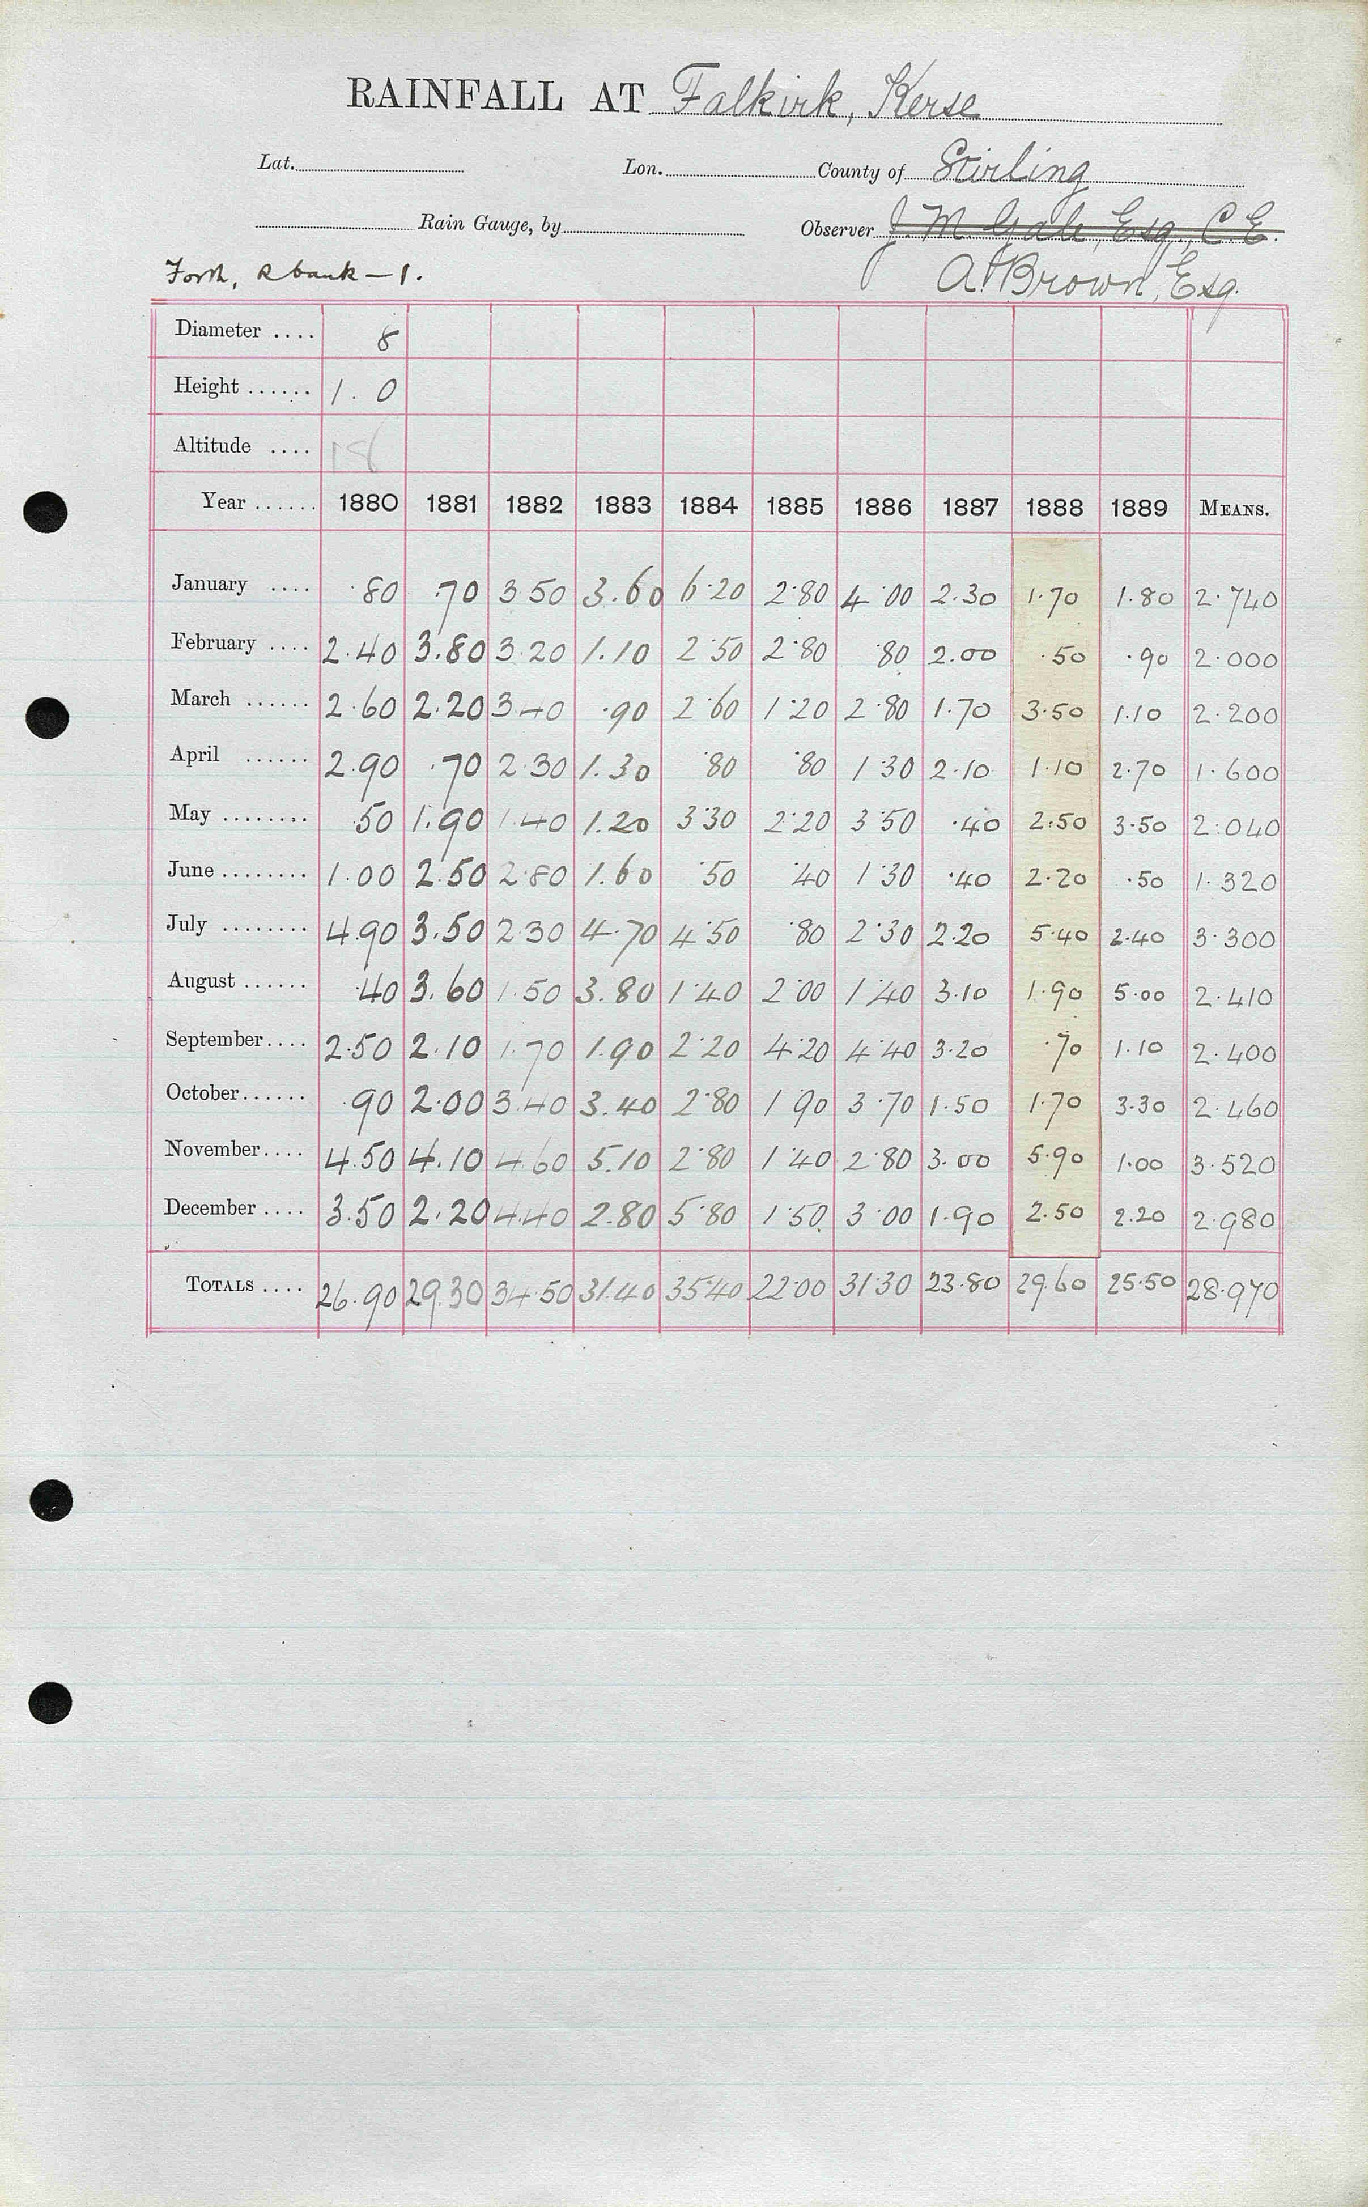 RAINFALL AT Falkirk, Kerse
Lat. Lon. County of Stirling
Rain Gauge, by Observer J. M. Gale, Esq., C.E.
Forth, R bank – 1. A. Brown, Esq.
Diameter .... 8
Height ...... 1. 0
Altitude ....
Year ...... 1880 1881 1882 1883 1884 1885 1886 1887 1888 1889 MEANS.
January .... .80 .70 3.50 3.60 6.20 2.80 4.00 2.30 1.70 1.80 2.740
February .... 2.40 3.80 3.20 1.10 2.50 2.80 .80 2.00 .50 .90 2.000
March ...... 2.60 2.20 3.40 .90 2.60 1.20 2.80 1.70 3.50 1.10 2.200
April ...... 2.90 .70 2.30 1.30 .80 .80 1.30 2.10 1.10 2.70 1.600
May ........ .50 1.90 1.40 1.20 3.30 2.20 3.50 .40 2.50 3.50 2.040
June ........ 1.00 2.50 2.80 1.60 .50 .40 1.30 .40 2.20 .50 1.320
July ........ 4.90 3.50 2.30 4.70 4.50 .80 2.30 2.20 5.40 2.40 3.300
August ...... .40 3.60 1.50 3.80 1.40 2.00 1.40 3.10 1.90 5.00 2.410
September.... 2.50 2.10 1.70 1.90 2.20 4.20 4.40 3.20 .70 1.10 2.400
October...... .90 2.00 3.40 3.40 2.80 1.90 3.70 1.50 1.70 3.30 2.460
November.... 4.50 4.10 4.60 5.10 2.80 1.40 2.80 3.00 5.90 1.00 3.520
December .... 3.50 2.20 4.40 2.80 5.80 1.50 3.00 1.90 2.50 2.20 2.980
TOTALS .... 26.90 29.30 34.50 31.40 35.40 22.00 31.30 23.80 29.60 25.50 28.970